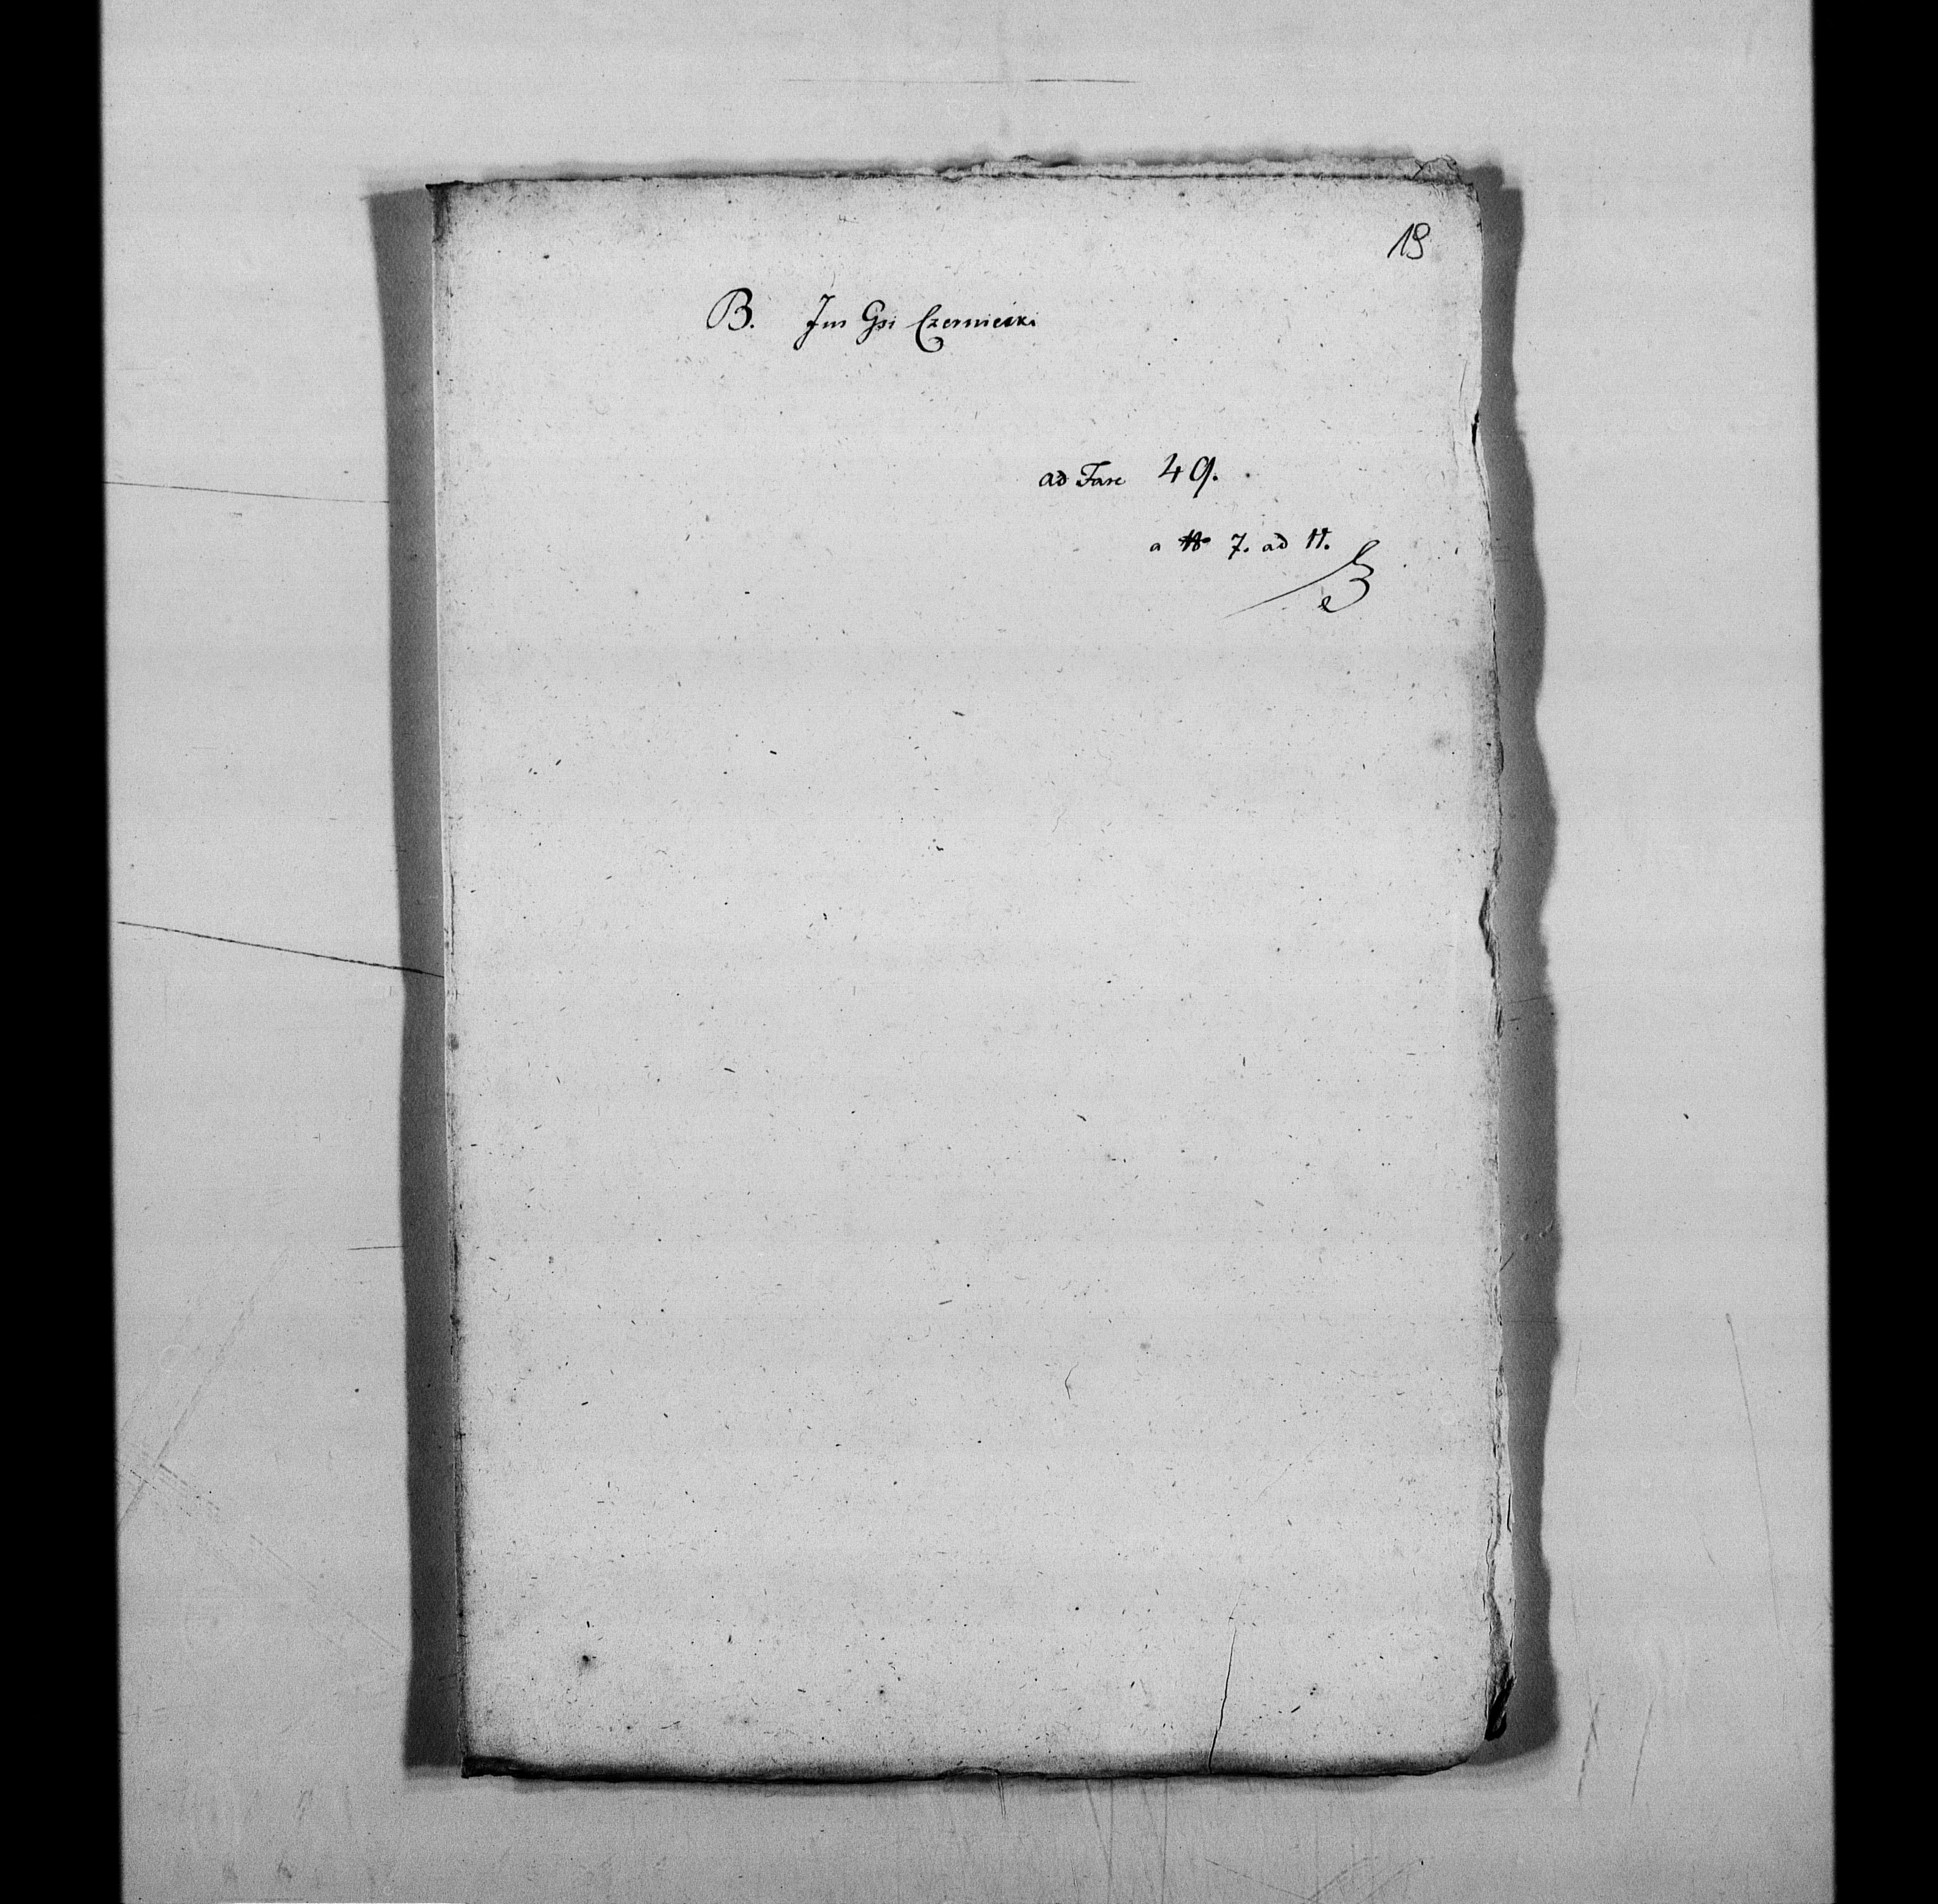 18
B. Jus Gsi Czerniecki
ad Fasc 49.
a № 7. ad 11.